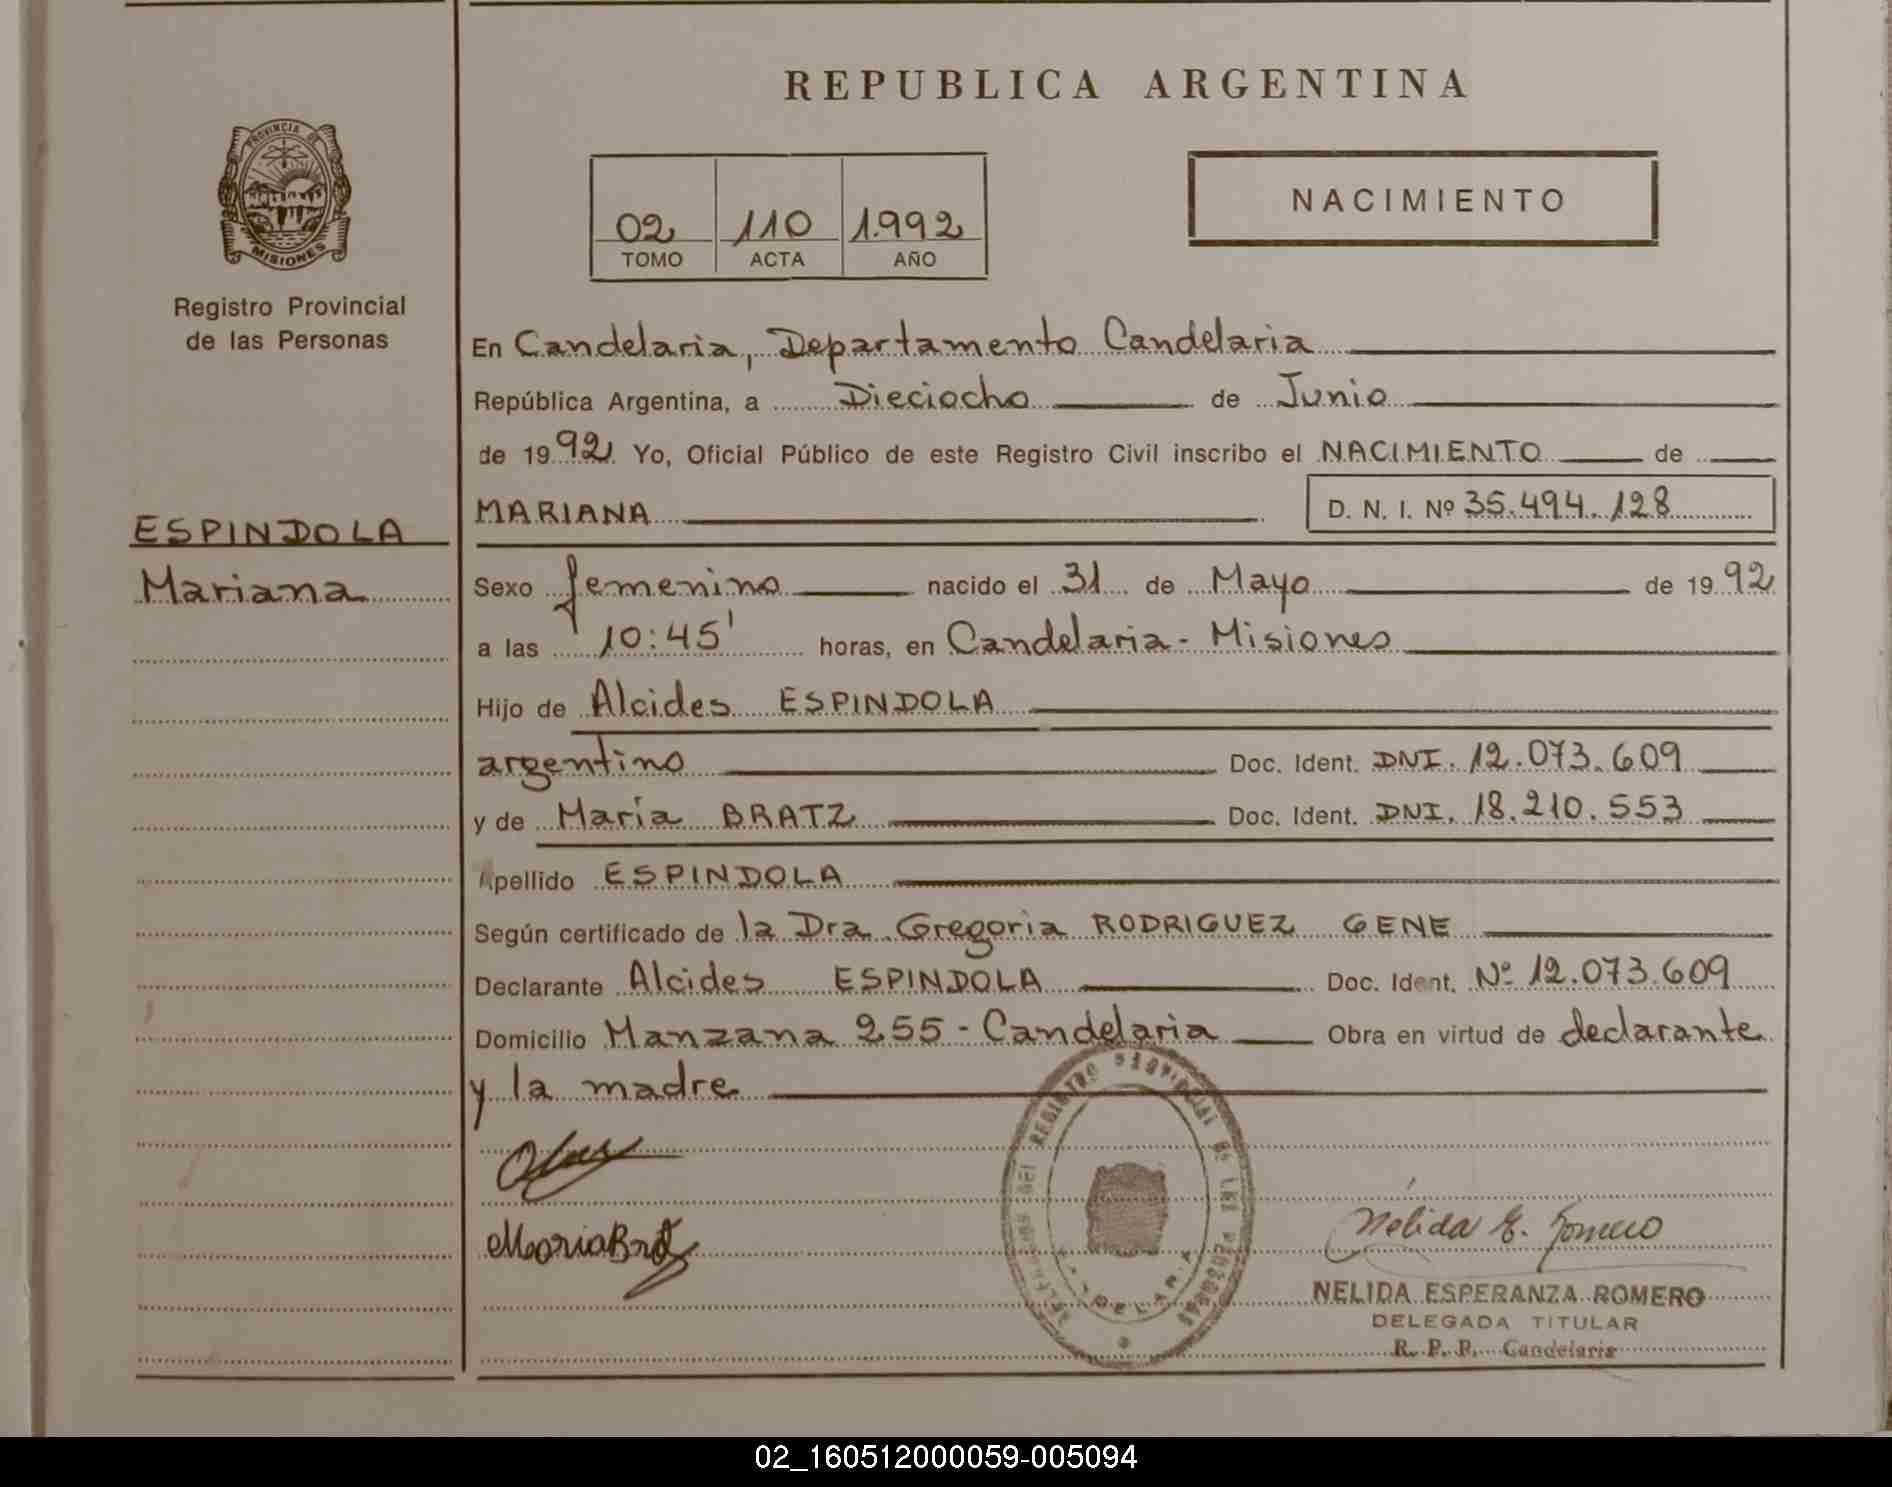 REPUBLICA ARGENTINA
PROVINCIA DE
MISIONES
Registro Provincial
de las Personas
02 110 1.992
TOMO ACTA AÑO
NACIMIENTO
En Candelaria, Departamento Candelaria
República Argentina, a Dieciocho de Junio
de 1992 Yo, Oficial Público de este Registro Civil inscribo el NACIMIENTO de
MARIANA D. N. I. Nº 35.494.128
ESPINDOLA
Mariana
Sexo femenino nacido el 31 de Mayo de 1992
a las 10:45' horas, en Candelaria - Misiones
Hijo de Alcides ESPINDOLA
argentino Doc. Ident. DNI. 12.073.609
y de María BRATZ Doc. Ident. DNI. 18.210.553
Apellido ESPINDOLA
Según certificado de la Dra. Gregoria RODRIGUEZ GENE
Declarante Alcides ESPINDOLA Doc. Ident. Nº 12.073.609
Domicilio Manzana 255 - Candelaria Obra en virtud de declarante
y la madre
REGISTRO PROVINCIAL DE LAS PERSONAS
CANDELARIA
Nélida E. Romero
NELIDA ESPERANZA ROMERO
DELEGADA TITULAR
R. P. P. Candelaria
02_160512000059-005094